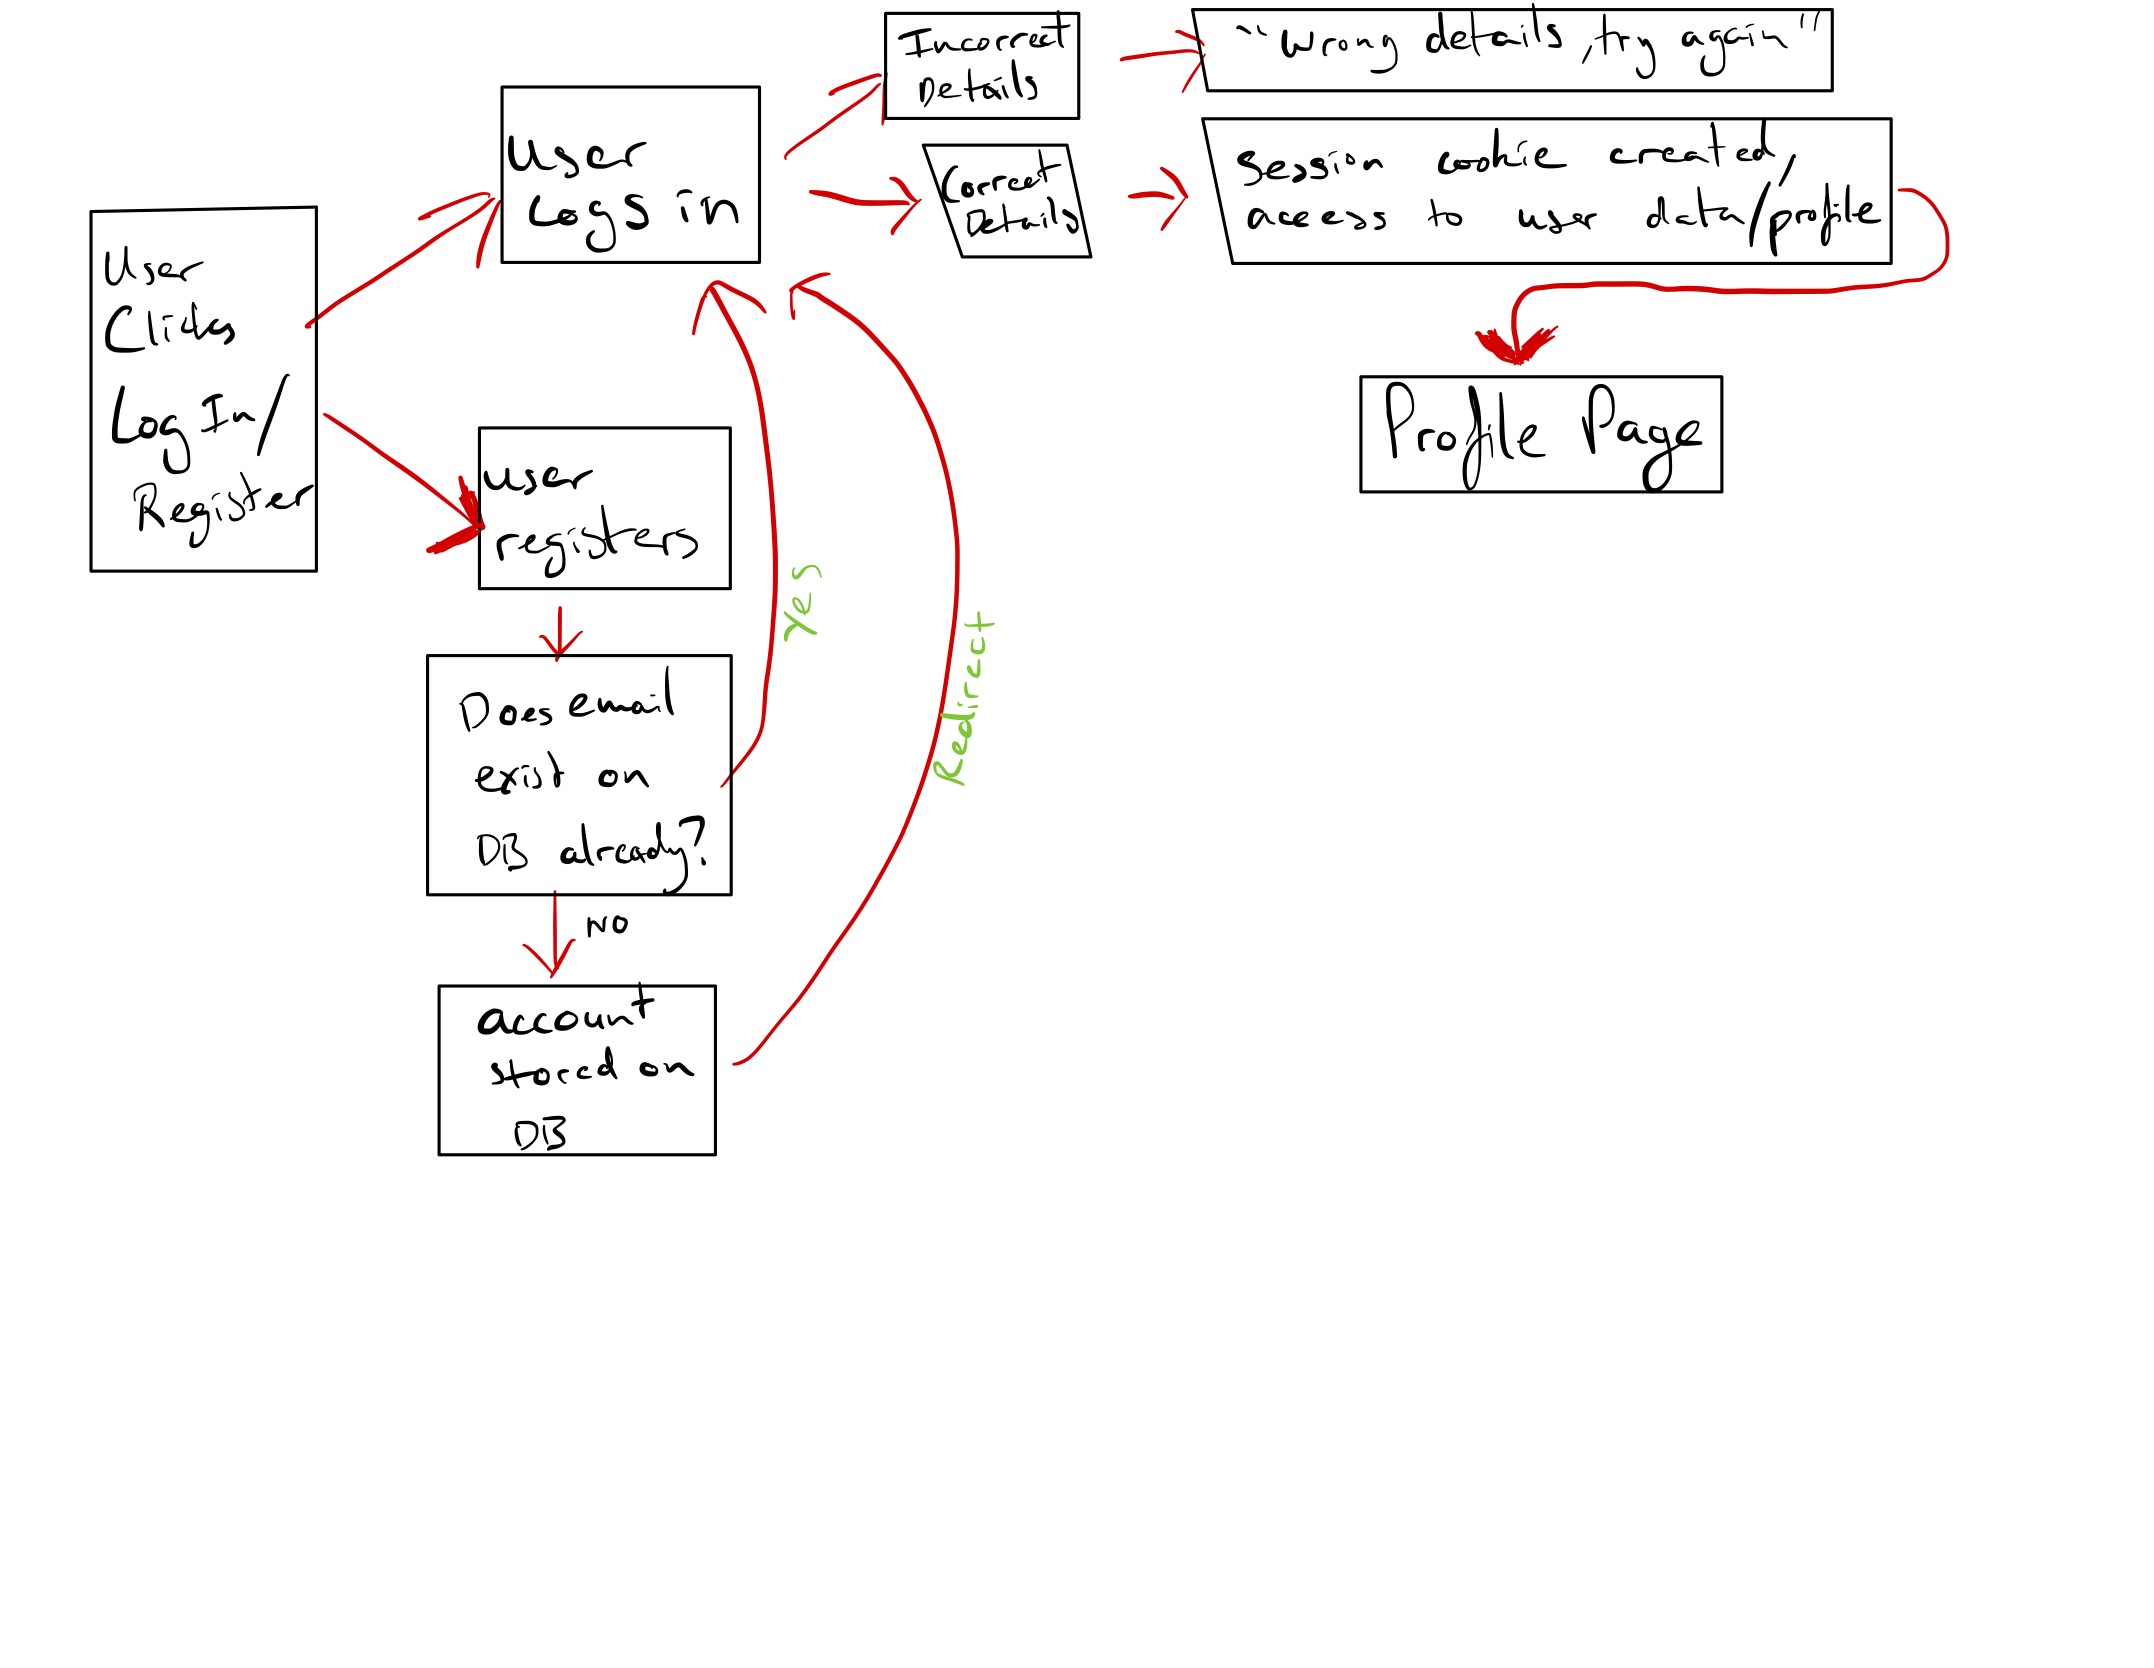 User
Clicks
Log In/
Register
User
Logs in
Incorrect
Details
"wrong details, try again"
Correct
Details
Session cookie created,
access to user data/profile
Profile Page
user
registers
Does email
exist on
DB already?
Yes
NO
account
stored on
DB
Redirect